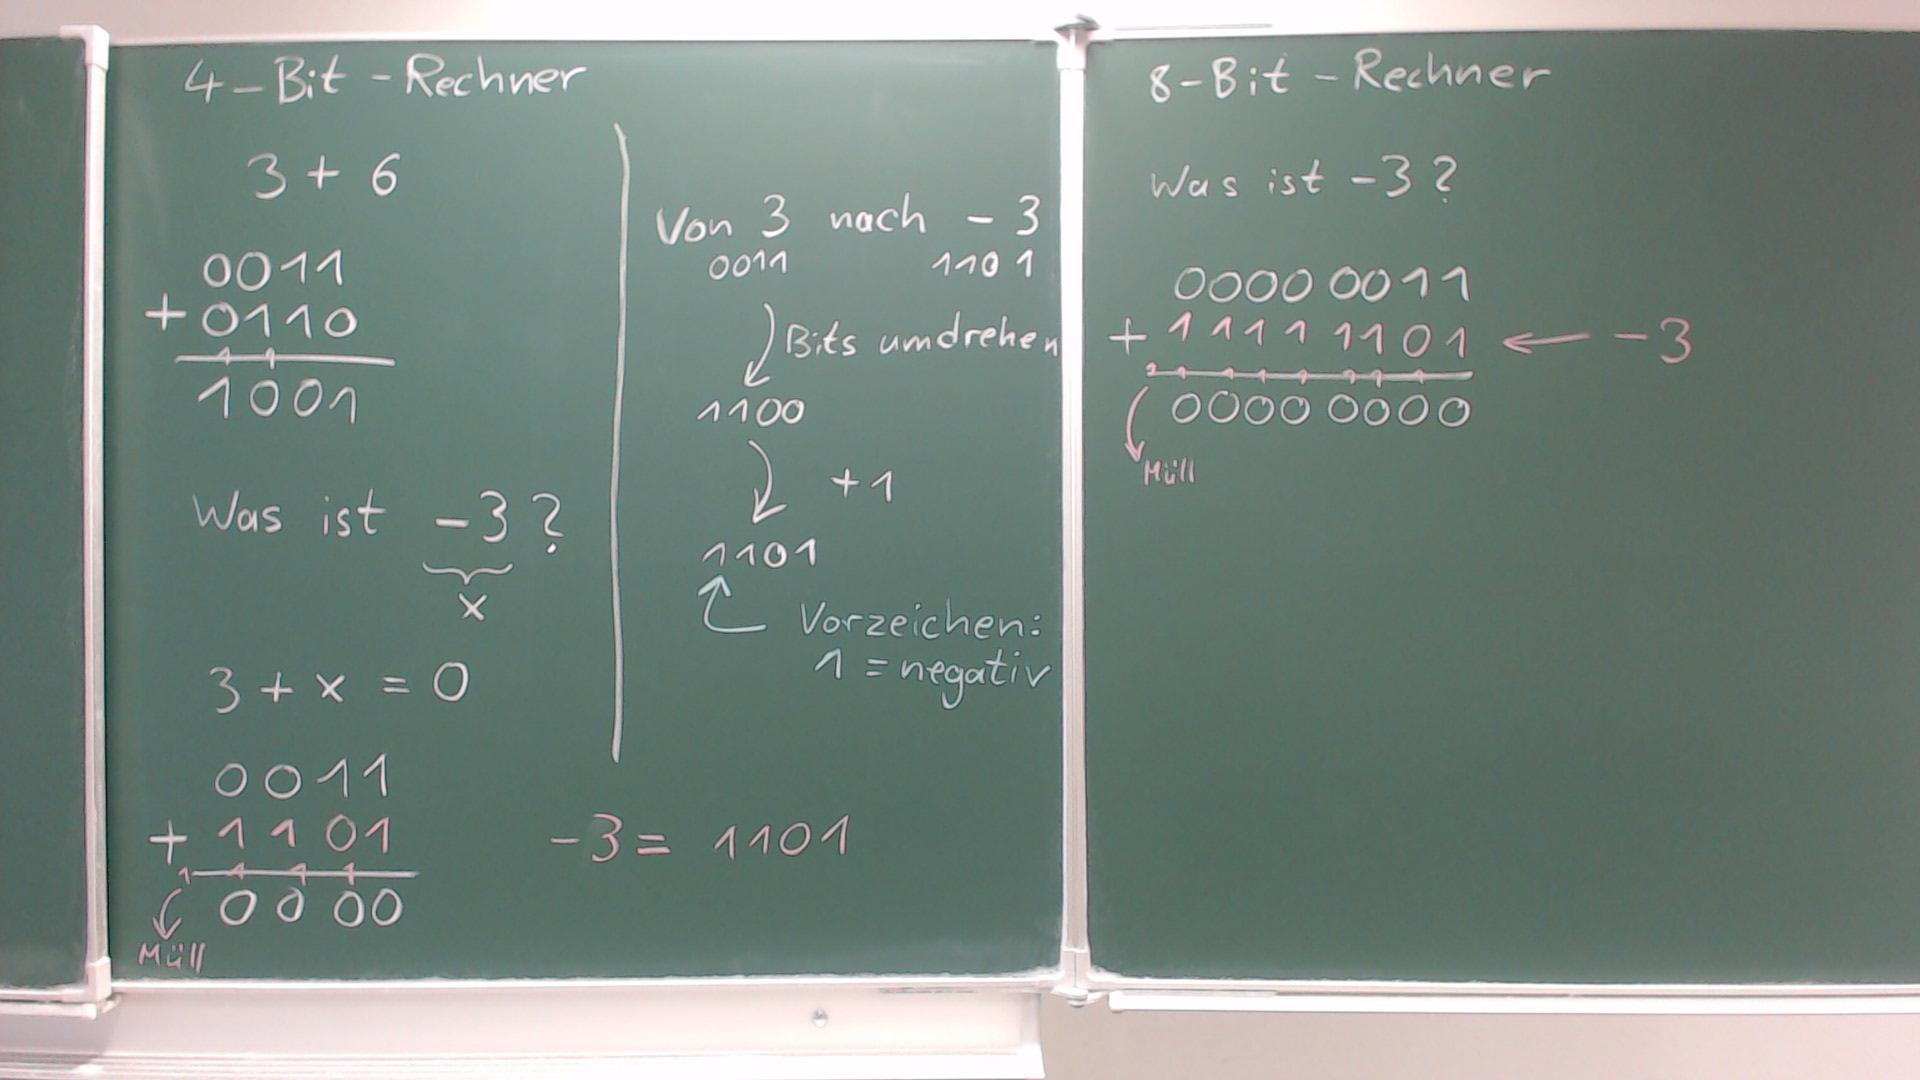 4-Bit-Rechner
3 + 6
0011
+ 0110
1 1
1001
Was ist -3?
x
3 + x = 0
0011
+ 1101
1 1 1 1
0000
Müll
-3 = 1101
Von 3 nach -3
0011 1101
Bits umdrehen
1100
+1
1101
Vorzeichen:
1 = negativ
8-Bit-Rechner
Was ist -3?
0000 0011
+ 1111 1101 ← -3
1 1 1 1 1 1 1 1
0000 0000
Müll